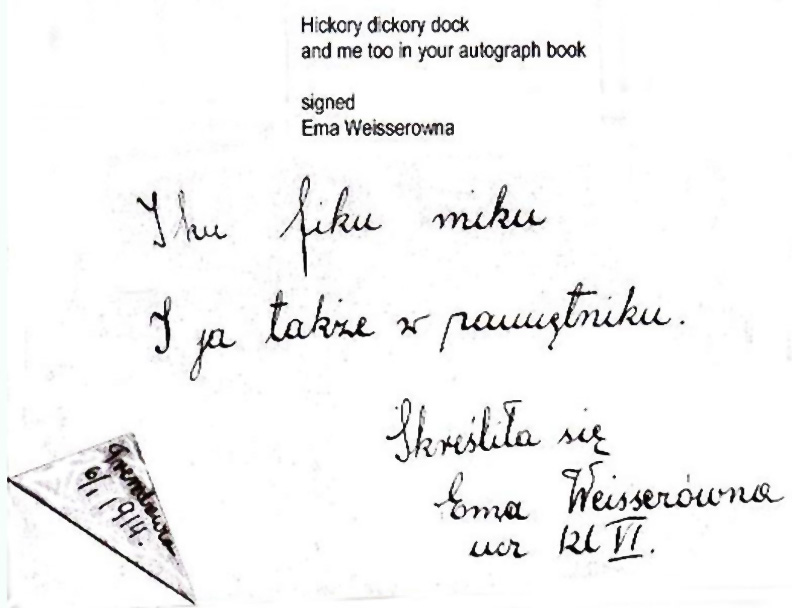 Hickory dickory dock
and me too in your autograph book
signed
Ema Weisserowna
Iku fiku miku
I ja także w pamiętniku.
Skreśliła się
Ema Weisserówna
ucz kl VI.
Trembowla
6/1 1914.